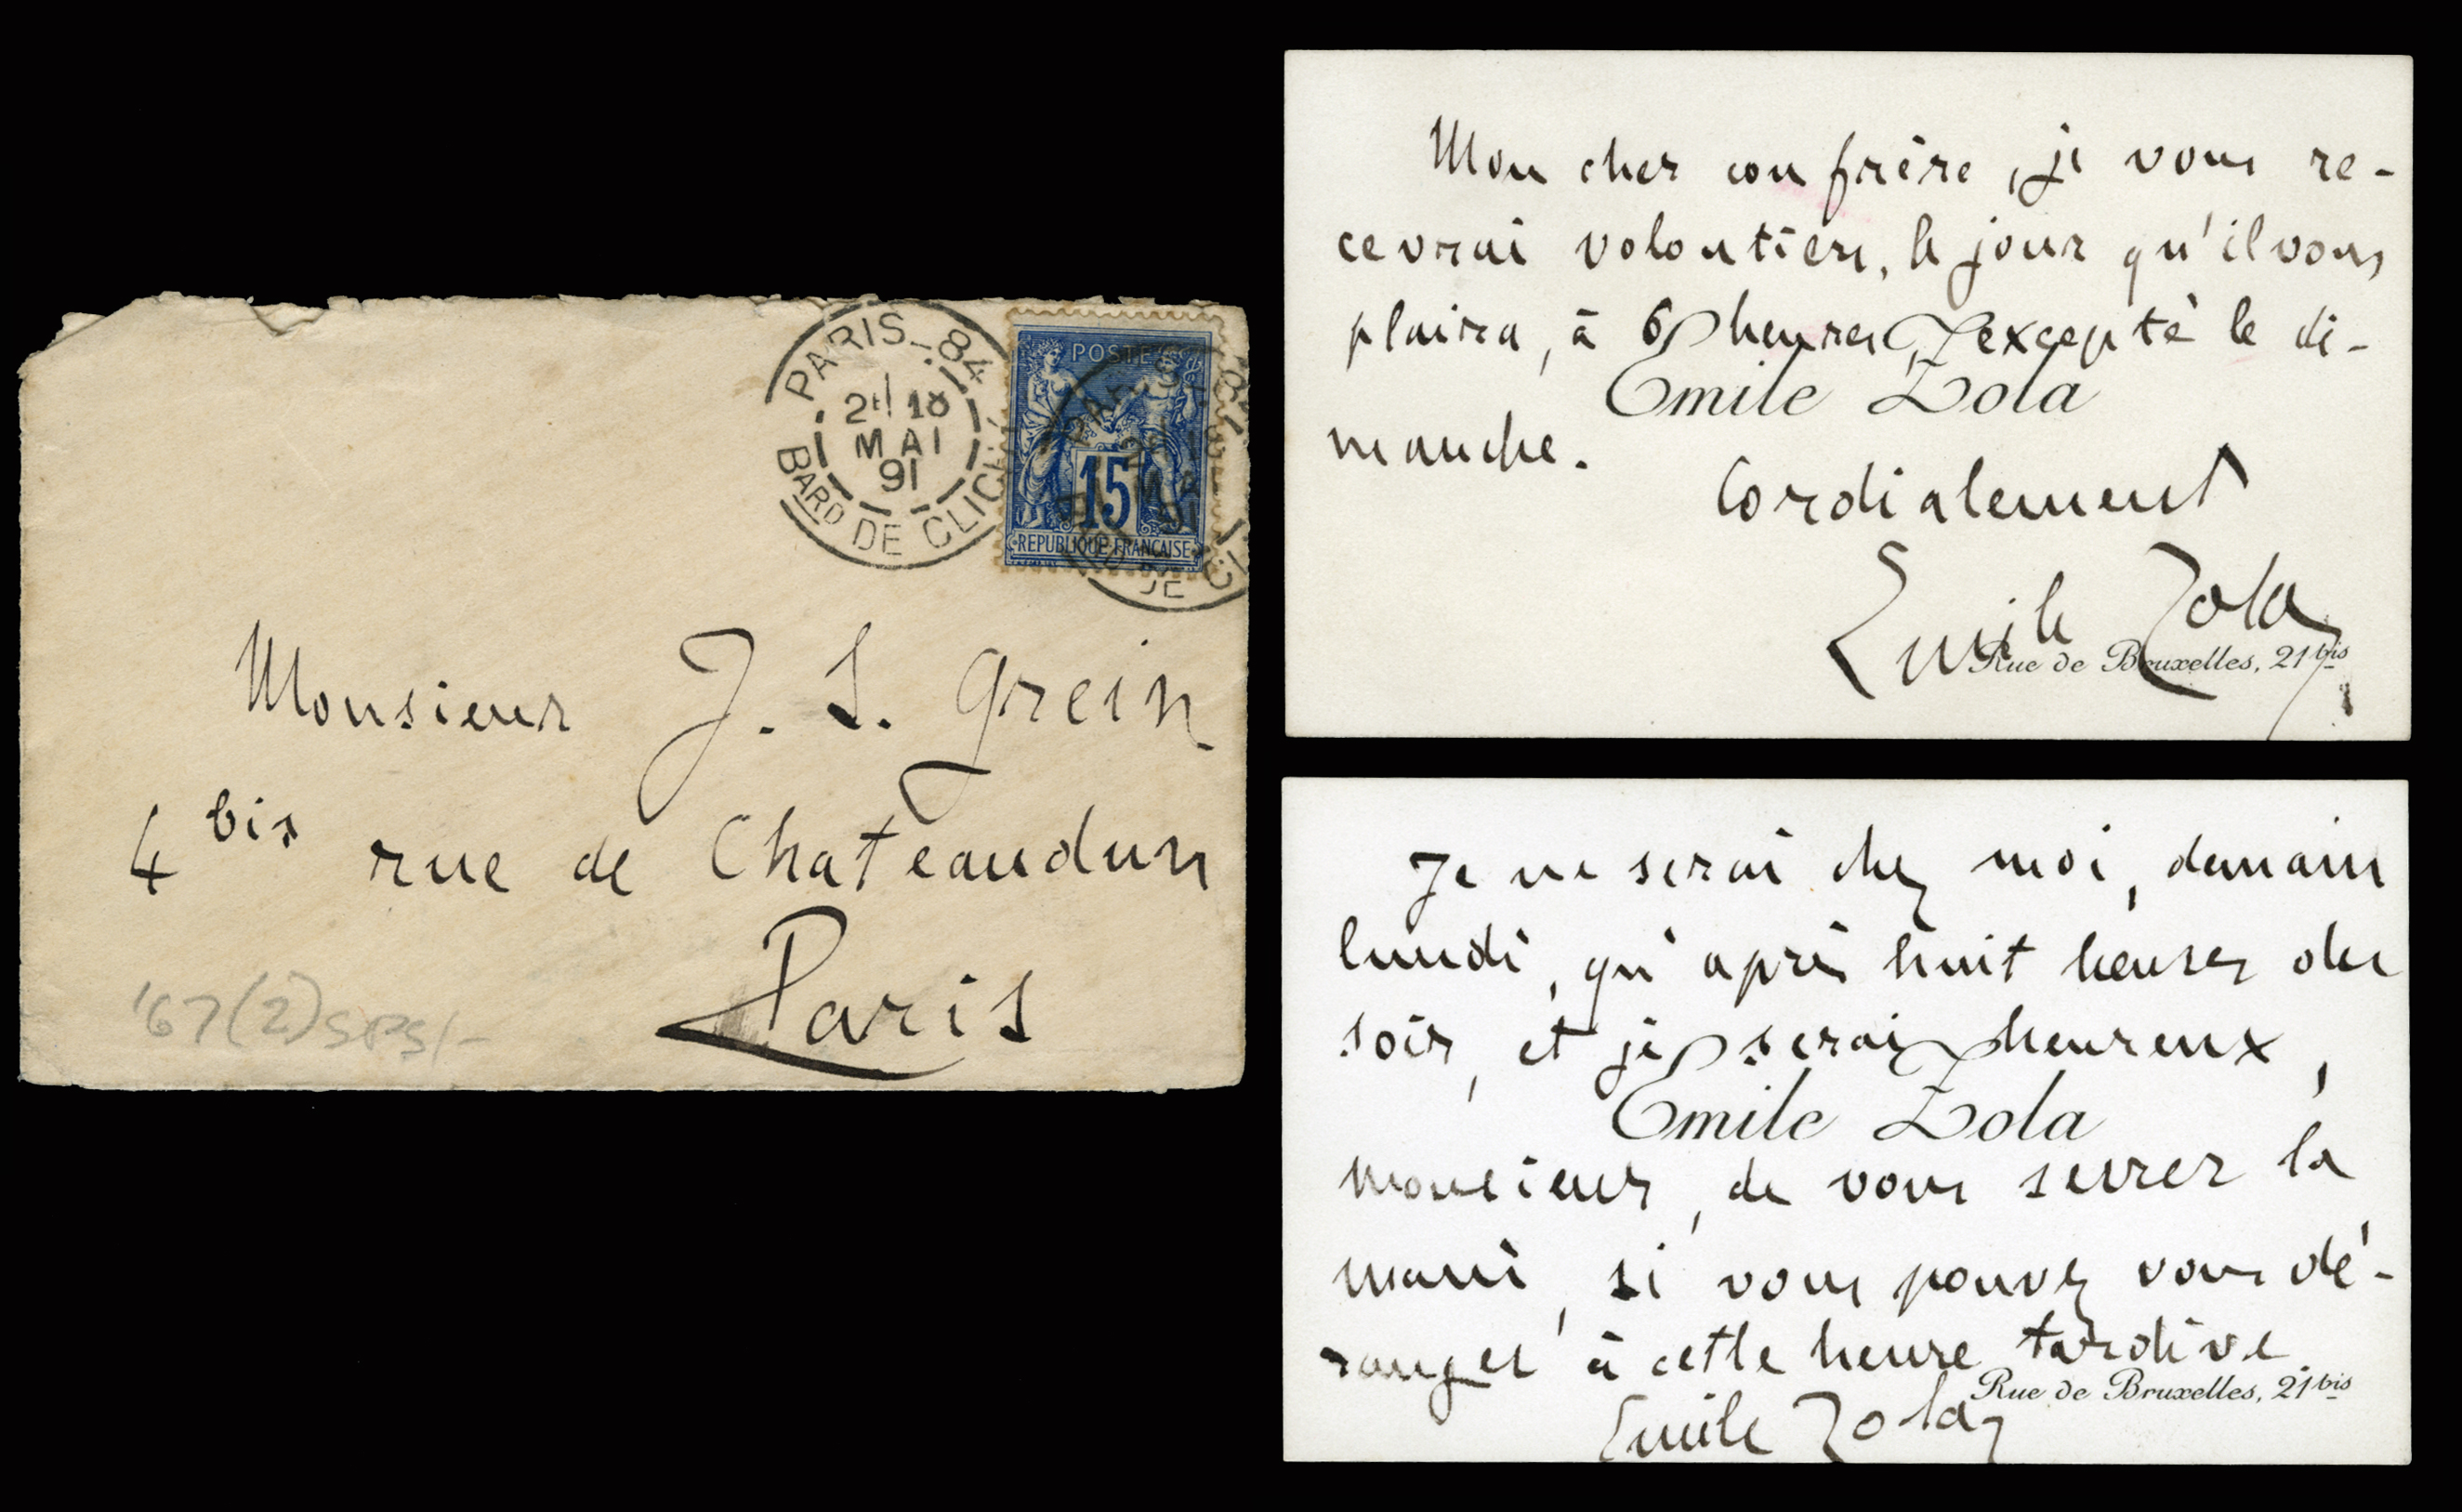 PARIS_84
2E 18
MAI
91
BARD DE CLICHY
POSTES
15
REPUBLIQUE FRANÇAISE
Monsieur J. S. Grein
4 bis rue de Chateaudun
Paris
'67(2)
Mon cher confrère, je vous re-
cevrai volontiers, le jour qu'il vous
plaira, à 6 heures, excepté le di-
Emile Zola
manche.
Cordialement
Emile Zola
Rue de Bruxelles, 21 bis
Je ne serai chez moi, demain
lundi, qu'après huit heures du
soir, et je serai heureux,
Emile Zola
monsieur, de vous serrer la
main, si vous pouvez vous dé-
ranger à cette heure tardive
Rue de Bruxelles, 21 bis
Emile Zola